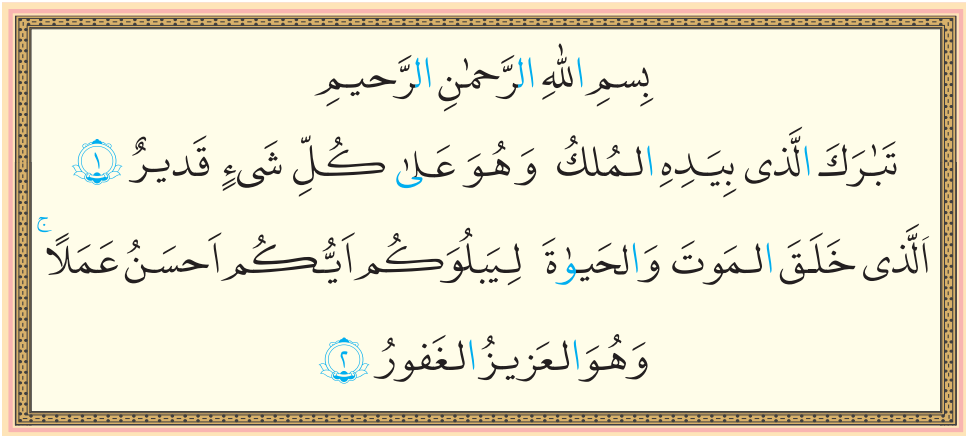 بِسمِ اللّٰهِ الرَّحمٰنِ الرَّحیمِ
تَبٰرَكَ الَّذی بِیَدِهِ المُلكُ وَ هُوَ عَلیٰ كُلِّ شَیءٍ قَدیرٌ ١
اَلَّذی خَلَقَ المَوتَ وَ الحَیوٰةَ لِیَبلُوَكُم اَیُّكُم اَحسَنُ عَمَلًا ۚ
وَ هُوَ العَزیزُ الغَفورُ ٢